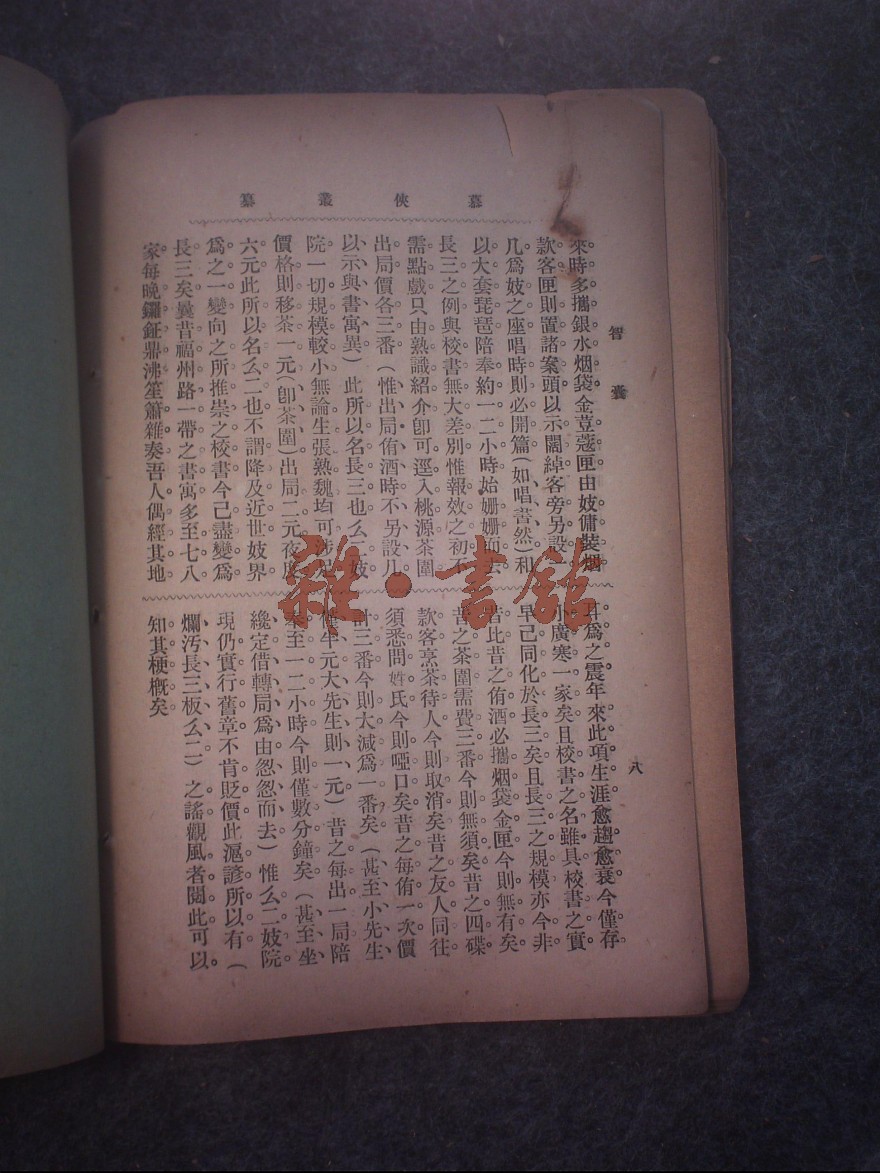 慕俠叢纂
智囊
來時多攜銀水烟袋金荳蔻匣由妓傭裝烟
款客匣則置諸案頭以示闊綽客旁另設一
几爲妓之座唱時則必開篇(如唱書然)和
以大套琵琶陪奉約一二小時始姍姍而去
長三之例與校書無大差別惟報效之初不
需點戲只由熟識紹介卽可逕入桃源茶圍
出局價各三番(惟出局侑酒時不另設几
以示與書寓異)此所以名長三也么二妓
院一切規模較小無論生張熟魏均可涉足
價格則移茶一元(卽茶圍)出局二元夜度
六元此所以名么二也不謂降及近世妓界
爲之一變向之所推崇之校書今已盡變爲
長三矣曩昔福州路一帶之書寓多至七八
家每晚鑼鉦鼎沸笙簫雜奏吾人偶經其地
耳爲之震年來此項生涯愈趨愈衰今僅存
小廣寒一家矣且校書之名雖具校書之實
早已同化於長三矣且長三之規模亦今非
昔比昔之侑酒必攜烟袋金匣今則無有矣
昔之茶圍需費三番今則無須矣昔之四碟
款客烹茶待人今則取消矣昔之友人同往
須悉問姓氏今則啞口矣昔之每侑一次價
計三番今則大減爲一番矣(甚至小先生
僅半元大先生則一元)昔之每出一局陪
奉至一二小時今則僅數分鐘矣(甚至坐
纔定借轉局爲由怱怱而去)惟么二妓院
現仍實行舊章不肯貶價此滬諺所以有(
爛汚長三板么二)之謠觀風者閱此可以
知其梗概矣
八
雜·書館